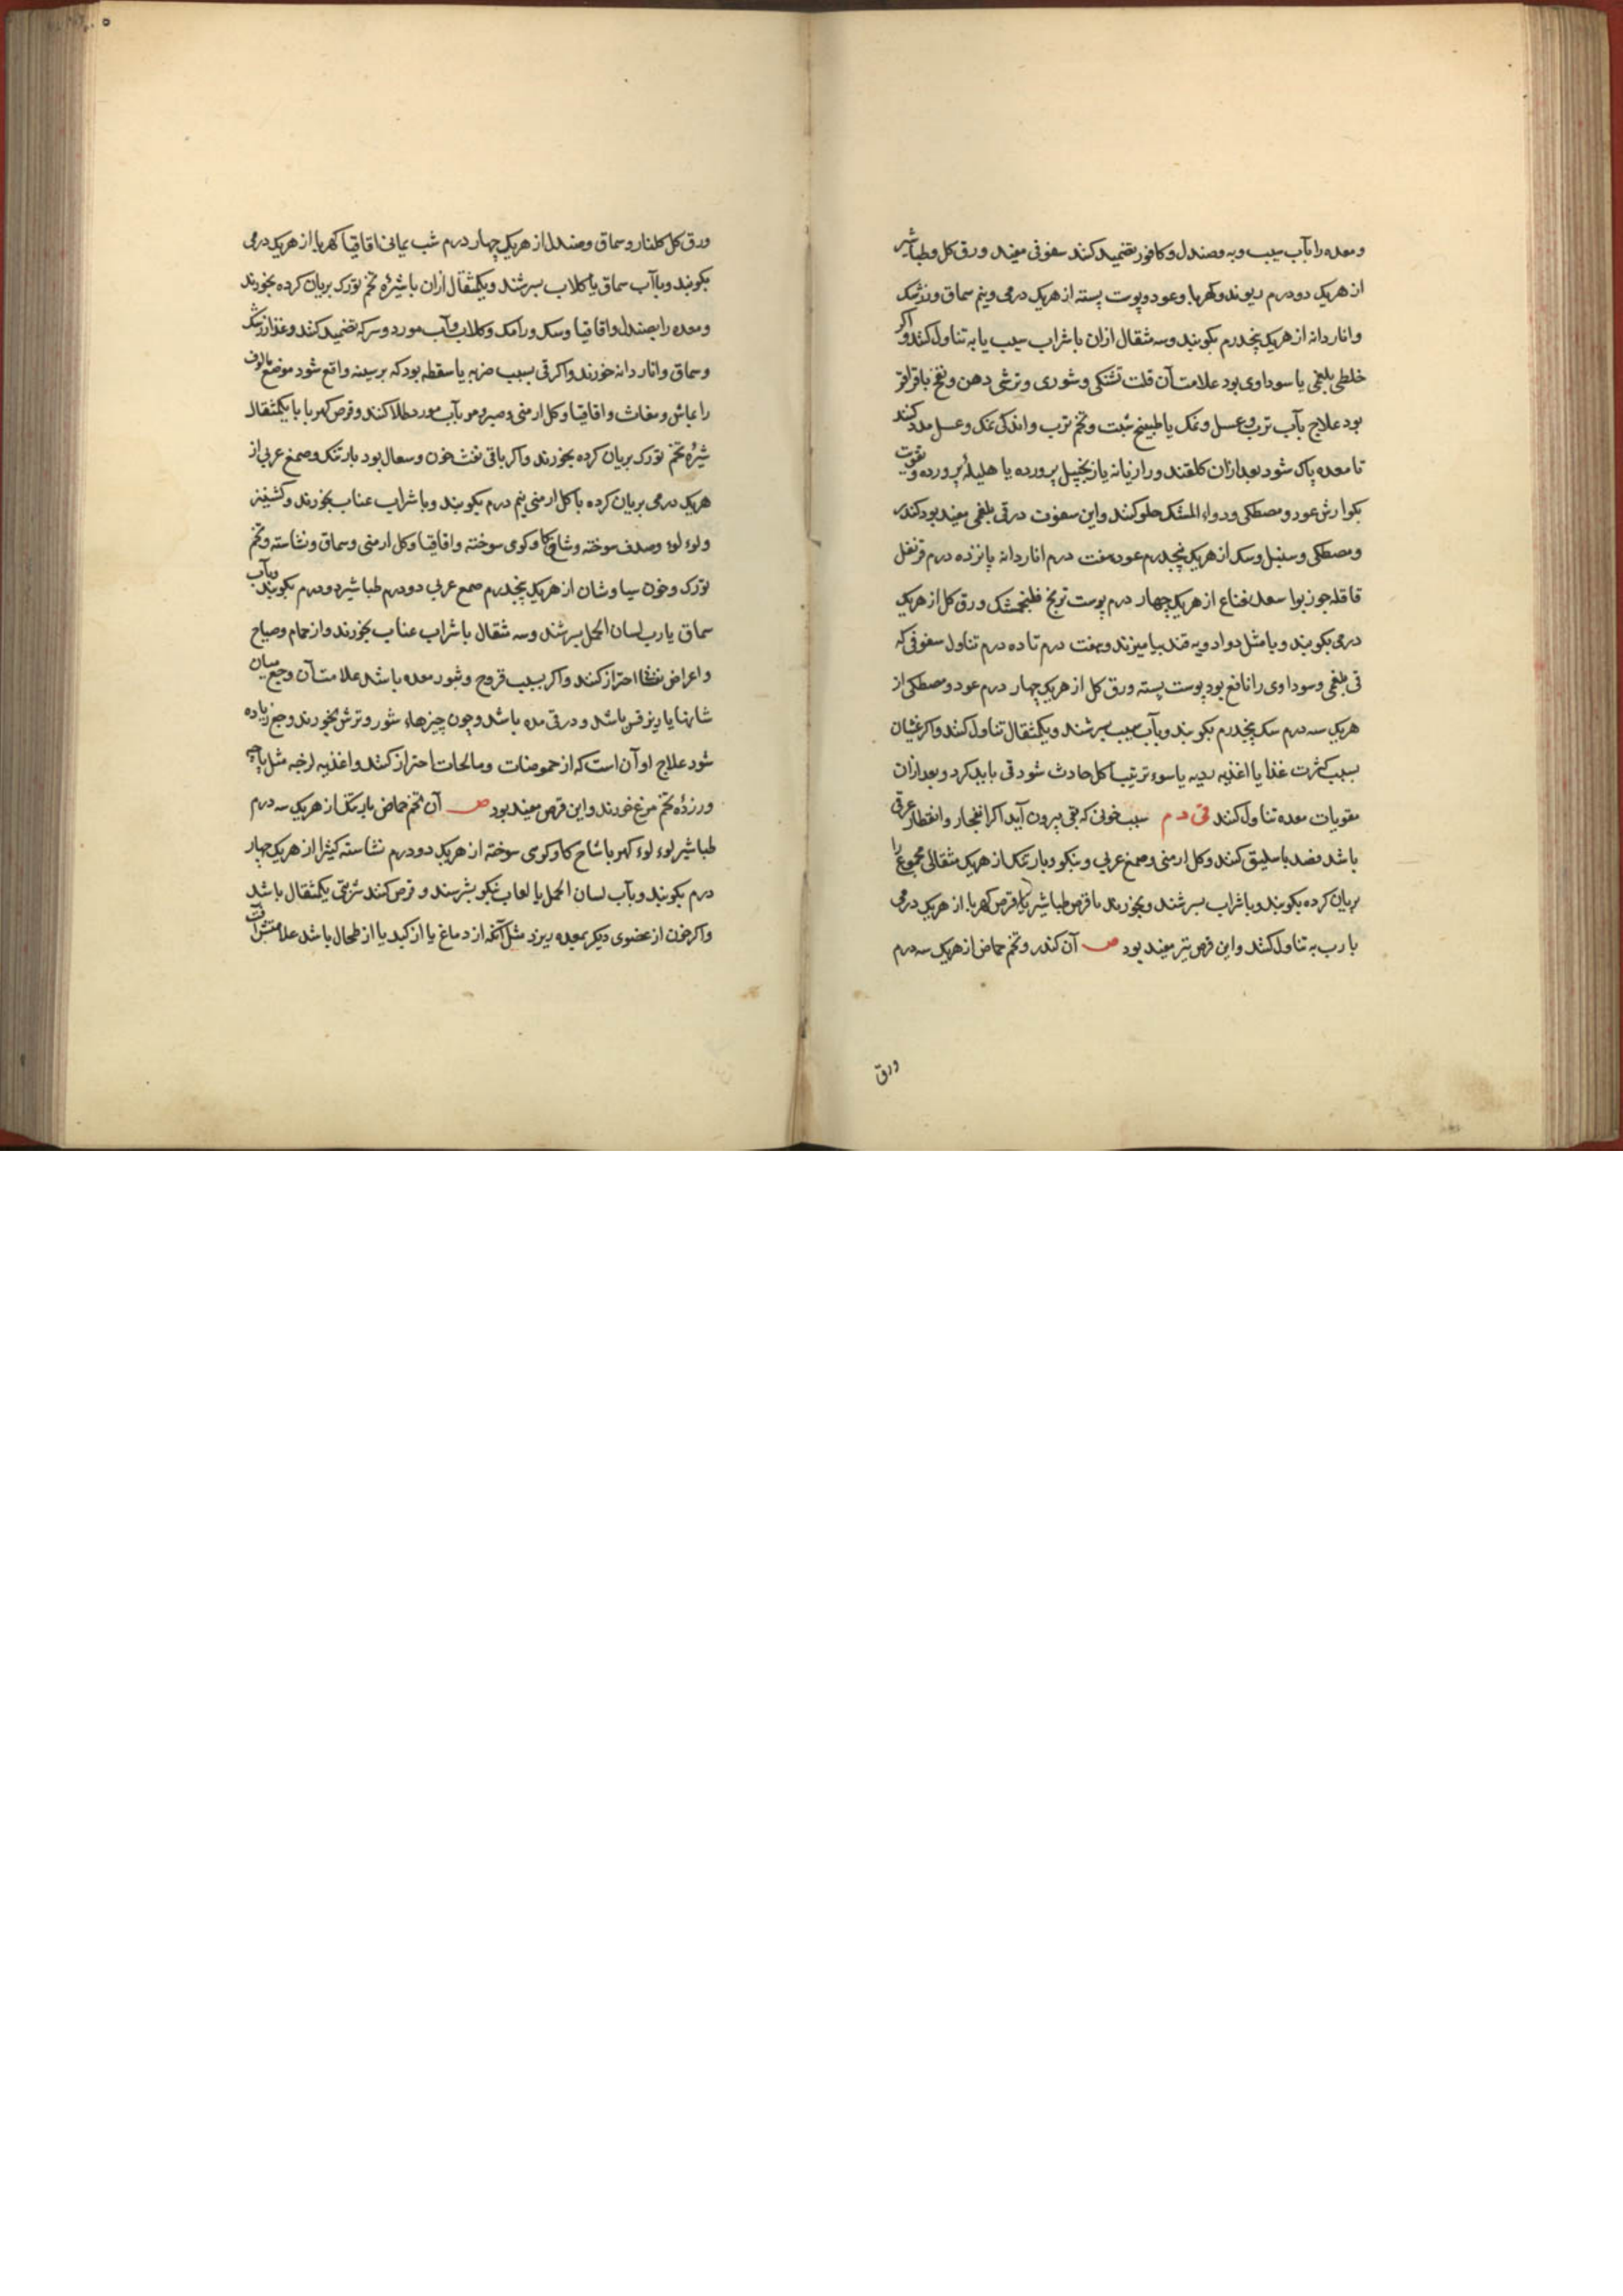 ومعده را بآب سیب وبه وصندل وکافور تضمید کنند سفوفی مفید ورق کل وطباشیر
از هریک دودرم ریوند وکهربا وعود وپوست پسته از هریک درمی ونیم سماق وزرشک
وانار دانه از هریک پنجدرم بکوبند وسه مثقال ازان با شراب سیب یا به تناول کنند واکر
خلطی بلغمی یا سوداوی بود علامت آن قلت تشنکی وشوری وترشی دهن ونفخ باقراقر
بود علاج بآب ترب وعسل ونمک یا طبیخ شبت وتخم ترب واندکی نمک وعسل مدد کنند
تا معده پاک شود بعد ازان کلقند ورازیانه یا زنجبیل پرورده یا هلیلهٔ پرورده وتقویت
بکوارش عود ومصطکی ودواء المسک حلو کنند واین سفوف در قی بلغمی مفید بود کندر
ومصطکی وسنبل وسک از هریک پنجدرم عود هفت درم انار دانه پانزده درم قرنفل
قاقله جوزبوا سعد نعناع از هریک چهار درم پوست ترنج فلنجمشک ورق کل از هریک
درمی بکوبند وبا مثل دو ادویه قند بیامیزند وهفت درم تا ده درم تناول سفوفی که
قی بلغمی وسوداوی را نافع بود پوست پسته ورق کل از هریک چهار درم عود ومصطکی از
هریک سه درم سک پنجدرم بکوبند وبآب سیب بسرشند ویکمثقال تناول کنند واکر غثیان
بسبب کثرت غذا یا اغذیه ردیه یا سوء ترتیب اکل حادث شود قی باید کرد وبعد ازان
مقویات معده تناول کنند قی دم سبب خونی که بقی بیرون آید اکر انفجار وانقطار عرقی
باشد فصد باسلیق کنند وکل ارمنی وصمغ عربی وبنکو وبارتنک از هریک مثقالی مجموع را
بریان کرده بکوبند وبا شراب بسرشند وبخورند با قرص طباشیر یا قرص کهربا از هریک درمی
با رب به تناول کنند واین قرص نیز مفید بود ص آن کندر وتخم حماض از هریک سه درم
ورق
ورق کل کلنار وسماق وصندل از هریک چهار درم شب یمانی اقاقیا کهربا از هریک درمی
بکوبند وبا آب سماق یا کلاب بسرشند ویکمثقال ازان با شیرهٔ تخم تورک بریان کرده بخورند
ومعده را بصندل واقاقیا وسک ورامک وکلاب وآب مورد وسرکه تضمید کنند وغذا زرشک
وسماق وانار دانه خورند واکر قی بسبب ضربه یا سقطه بود که بر سینه واقع شود موضع مالوف
را بماش ومغاث واقاقیا وکل ارمنی وصبر ومر بآب مورد طلا کنند وقرص کهربا با یکمثقال
شیرهٔ تخم تورک بریان کرده بخورند واکر باقی نفث خون وسعال بود بارتنک وصمغ عربی از
هریک درمی بریان کرده با کل ارمنی نیم درم بکوبند وبا شراب عناب بخورند وکشنیز
ولوء لوء وصدف سوخته وشاخ کاو کوی سوخته واقاقیا وکل ارمنی وسماق ونشاسته وتخم
تورک وخون سیاوشان از هریک پنجدرم صمغ عربی دودرم طباشیر دودرم بکوبند وبآب
سماق یا رب لسان الحمل بسرشند وسه مثقال با شراب عناب بخورند واز حمام وصیاح
واعراض نفسانی احتراز کنند واکر بسبب قروح وبثور معده باشد علامت آن وجع میان
شانها یا زیر فس باشد ودر قی مده باشد وچون چیزهاء شور وترش بخورند وجع زیاده
شود علاج او آن است که از حموضات ومالحات احتراز کنند واغذیه لزجه مثل پاچه
وزردهٔ تخم مرغ خورند واین قرص مفید بود ص آن تخم حماض بارتنک از هریک سه درم
طباشیر لوء لوء کهربا شاخ کاو کوی سوخته از هریک دودرم نشاسته کثیرا از هریک چهار
درم بکوبند وبآب لسان الحمل یا لعاب بنکو بسرشند وقرص کنند شربتی یکمثقال باشد
واکر خون از عضوی دیکر بمعده ریزد مثل آنکه از دماغ یا از کبد یا از طحال باشد علامتش